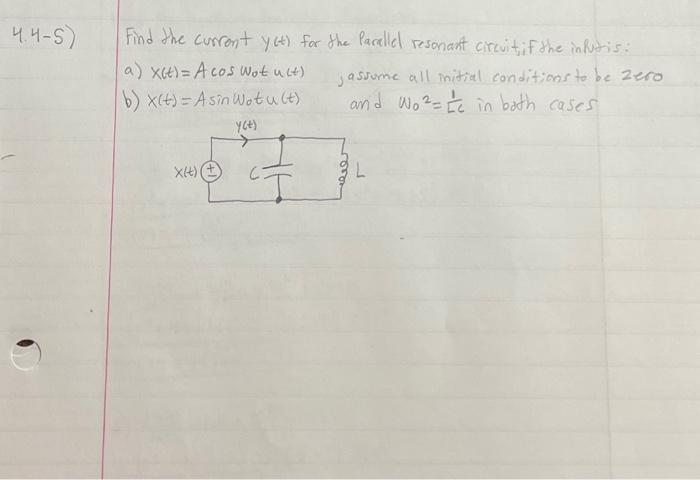 4.4-5) Find the current y(t) for the Parallel resonant circuit, if the input is:
a) x(t) = A cos ω₀t u(t) , assume all initial conditions to be zero
b) x(t) = A sin ω₀t u(t) and ω₀² = 1/LC in both cases
y(t)
x(t) + − C L